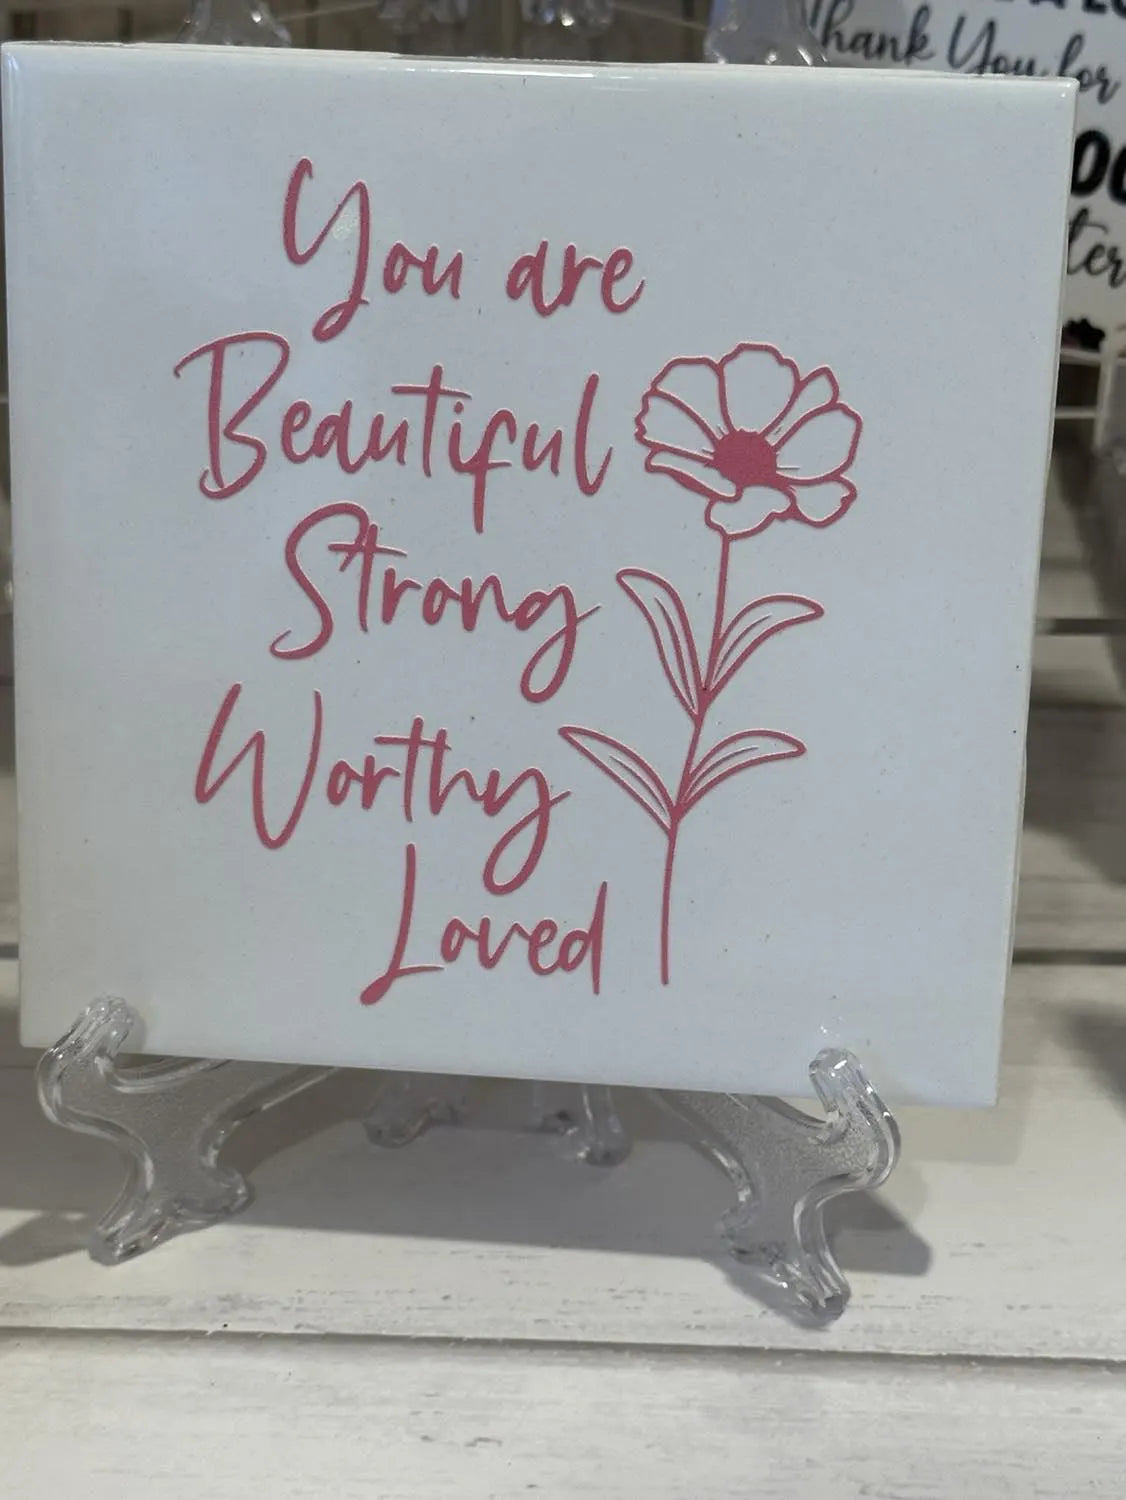 You are
Beautiful
Strong
Worthy
Loved
Thank You for